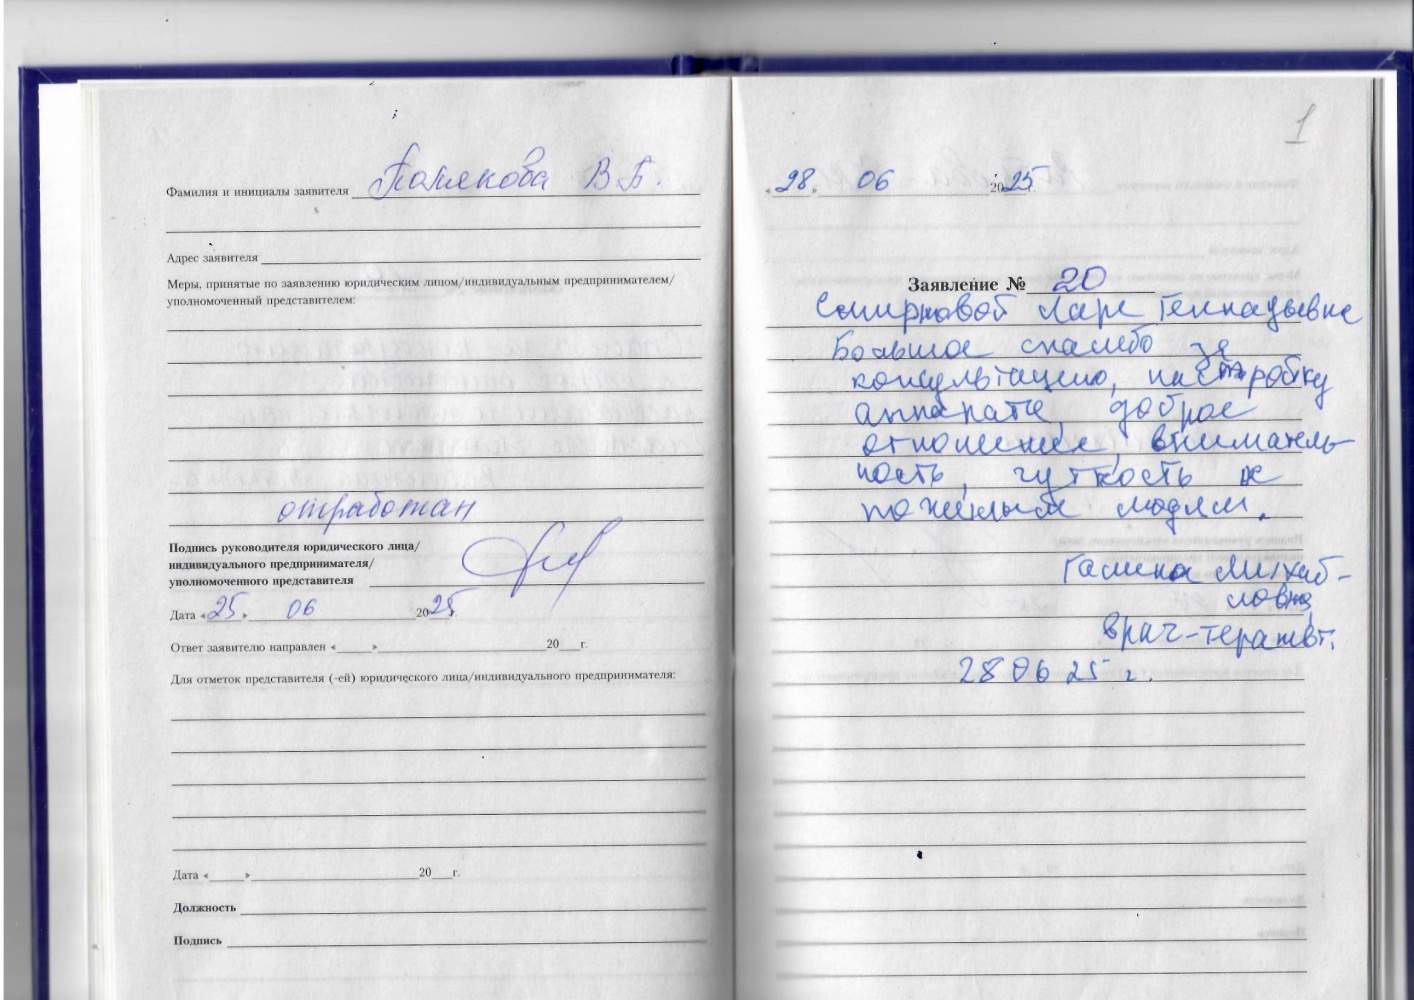 Фамилия и инициалы заявителя Полякова В.Б.
Адрес заявителя
Меры, принятые по заявлению юридическим лицом/индивидуальным предпринимателем/
уполномоченный представителем:
отработан
Подпись руководителя юридического лица/
индивидуального предпринимателя/
уполномоченного представителя
Дата «25» 06 2025г.
Ответ заявителю направлен «   » 20   г.
Для отметок представителя (-ей) юридического лица/индивидуального предпринимателя:
Дата «   » 20   г.
Должность
Подпись
1
«28» 06 2025г.
Заявление № 20
Смирновой Ларе Геннадьевне
Большое спасибо за
консультацию, настройку
аппарата, доброе
отношение, вниматель-
ность, чуткость к
пожилым людям.
Галина Михай-
ловна,
врач-терапевт.
28 06 25 г.